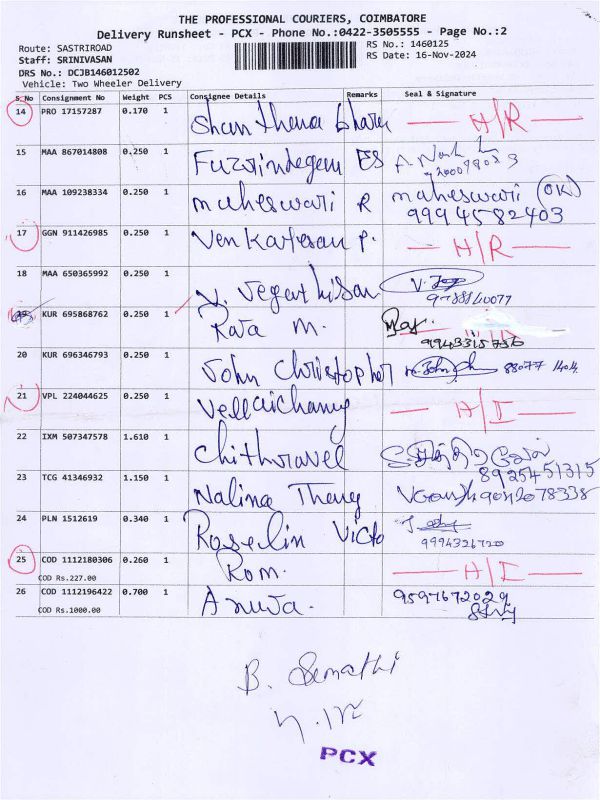 THE PROFESSIONAL COURIERS, COIMBATORE
Delivery Runsheet - PCX - Phone No.:0422-3505555 - Page No.:2
Route: SASTRIROAD RS No.: 1460125
Staff: SRINIVASAN RS Date: 16-Nov-2024
DRS No.: DCJB146012502
Vehicle: Two Wheeler Delivery
S.No Consignment No Weight PCS Consignee Details Remarks Seal & Signature
14 PRO 17157287 0.170 1 H/R
15 MAA 867014808 0.250 1 ES
16 MAA 109238334 0.250 1 maheswari R maheswari OK
9994582403
17 GGN 911426985 0.250 1 Venkatesan P. H/R
18 MAA 650365992 0.250 1 V.
KUR 695868762 0.250 1 Raja M. Raj
20 KUR 696346793 0.250 1 John Christopher 88077
21 VPL 224044625 0.250 1 Vellaichamy
22 IXM 507347578 1.610 1 Chithravel
8925451315
23 TCG 41346932 1.150 1 Nalina 9042078338
24 PLN 1512619 0.340 1 Roselin Victo
9994326720
25 COD 1112180306 0.260 1 Rom.
COD Rs.227.00
26 COD 1112196422 0.700 1 9597672029
COD Rs.1000.00
B.
PCX